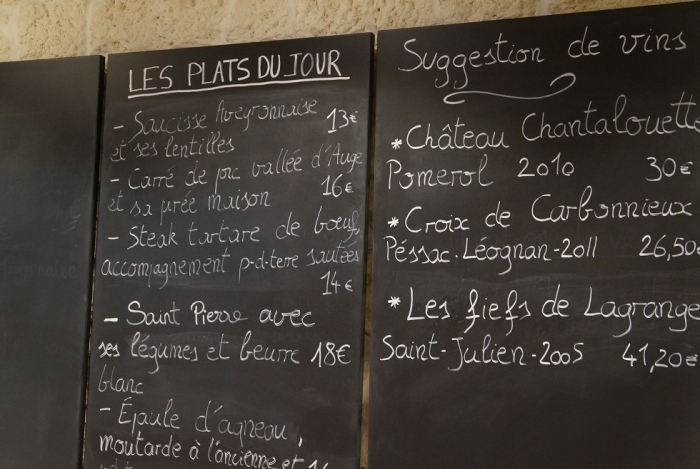 LES PLATS DU JOUR
- Saucisse Aveyronnaise
et ses lentilles 13€
- Carré de porc vallée d'Auge
et sa purée maison 16€
- Steak tartare de boeuf,
accompagnement p-d-terre sautées
14€
- Saint Pierre avec
ses légumes et beurre 18€
blanc
- Épaule d'agneau,
moutarde à l'ancienne et
Suggestion de vins
* Château Chantalouette
Pomerol 2010 30€
* Croix de Carbonnieux
Péssac.Léognan-2011 26,50€
* Les fiefs de Lagrange
Saint-Julien-2005 41,20€